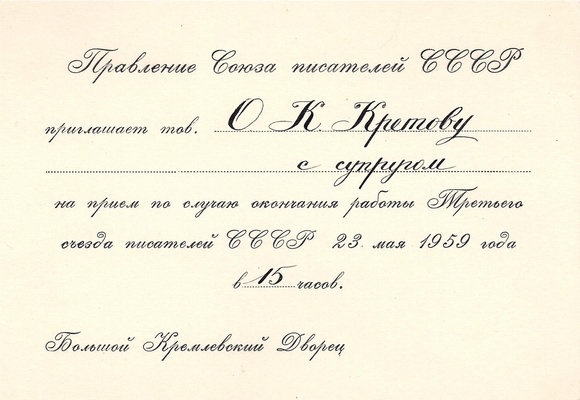 Правление Союза писателей СССР
приглашает тов. О К Кретову
с супругом
на прием по случаю окончания работы Третьего
съезда писателей СССР 23 мая 1959 года
в 15 часов.
Большой Кремлевский Дворец